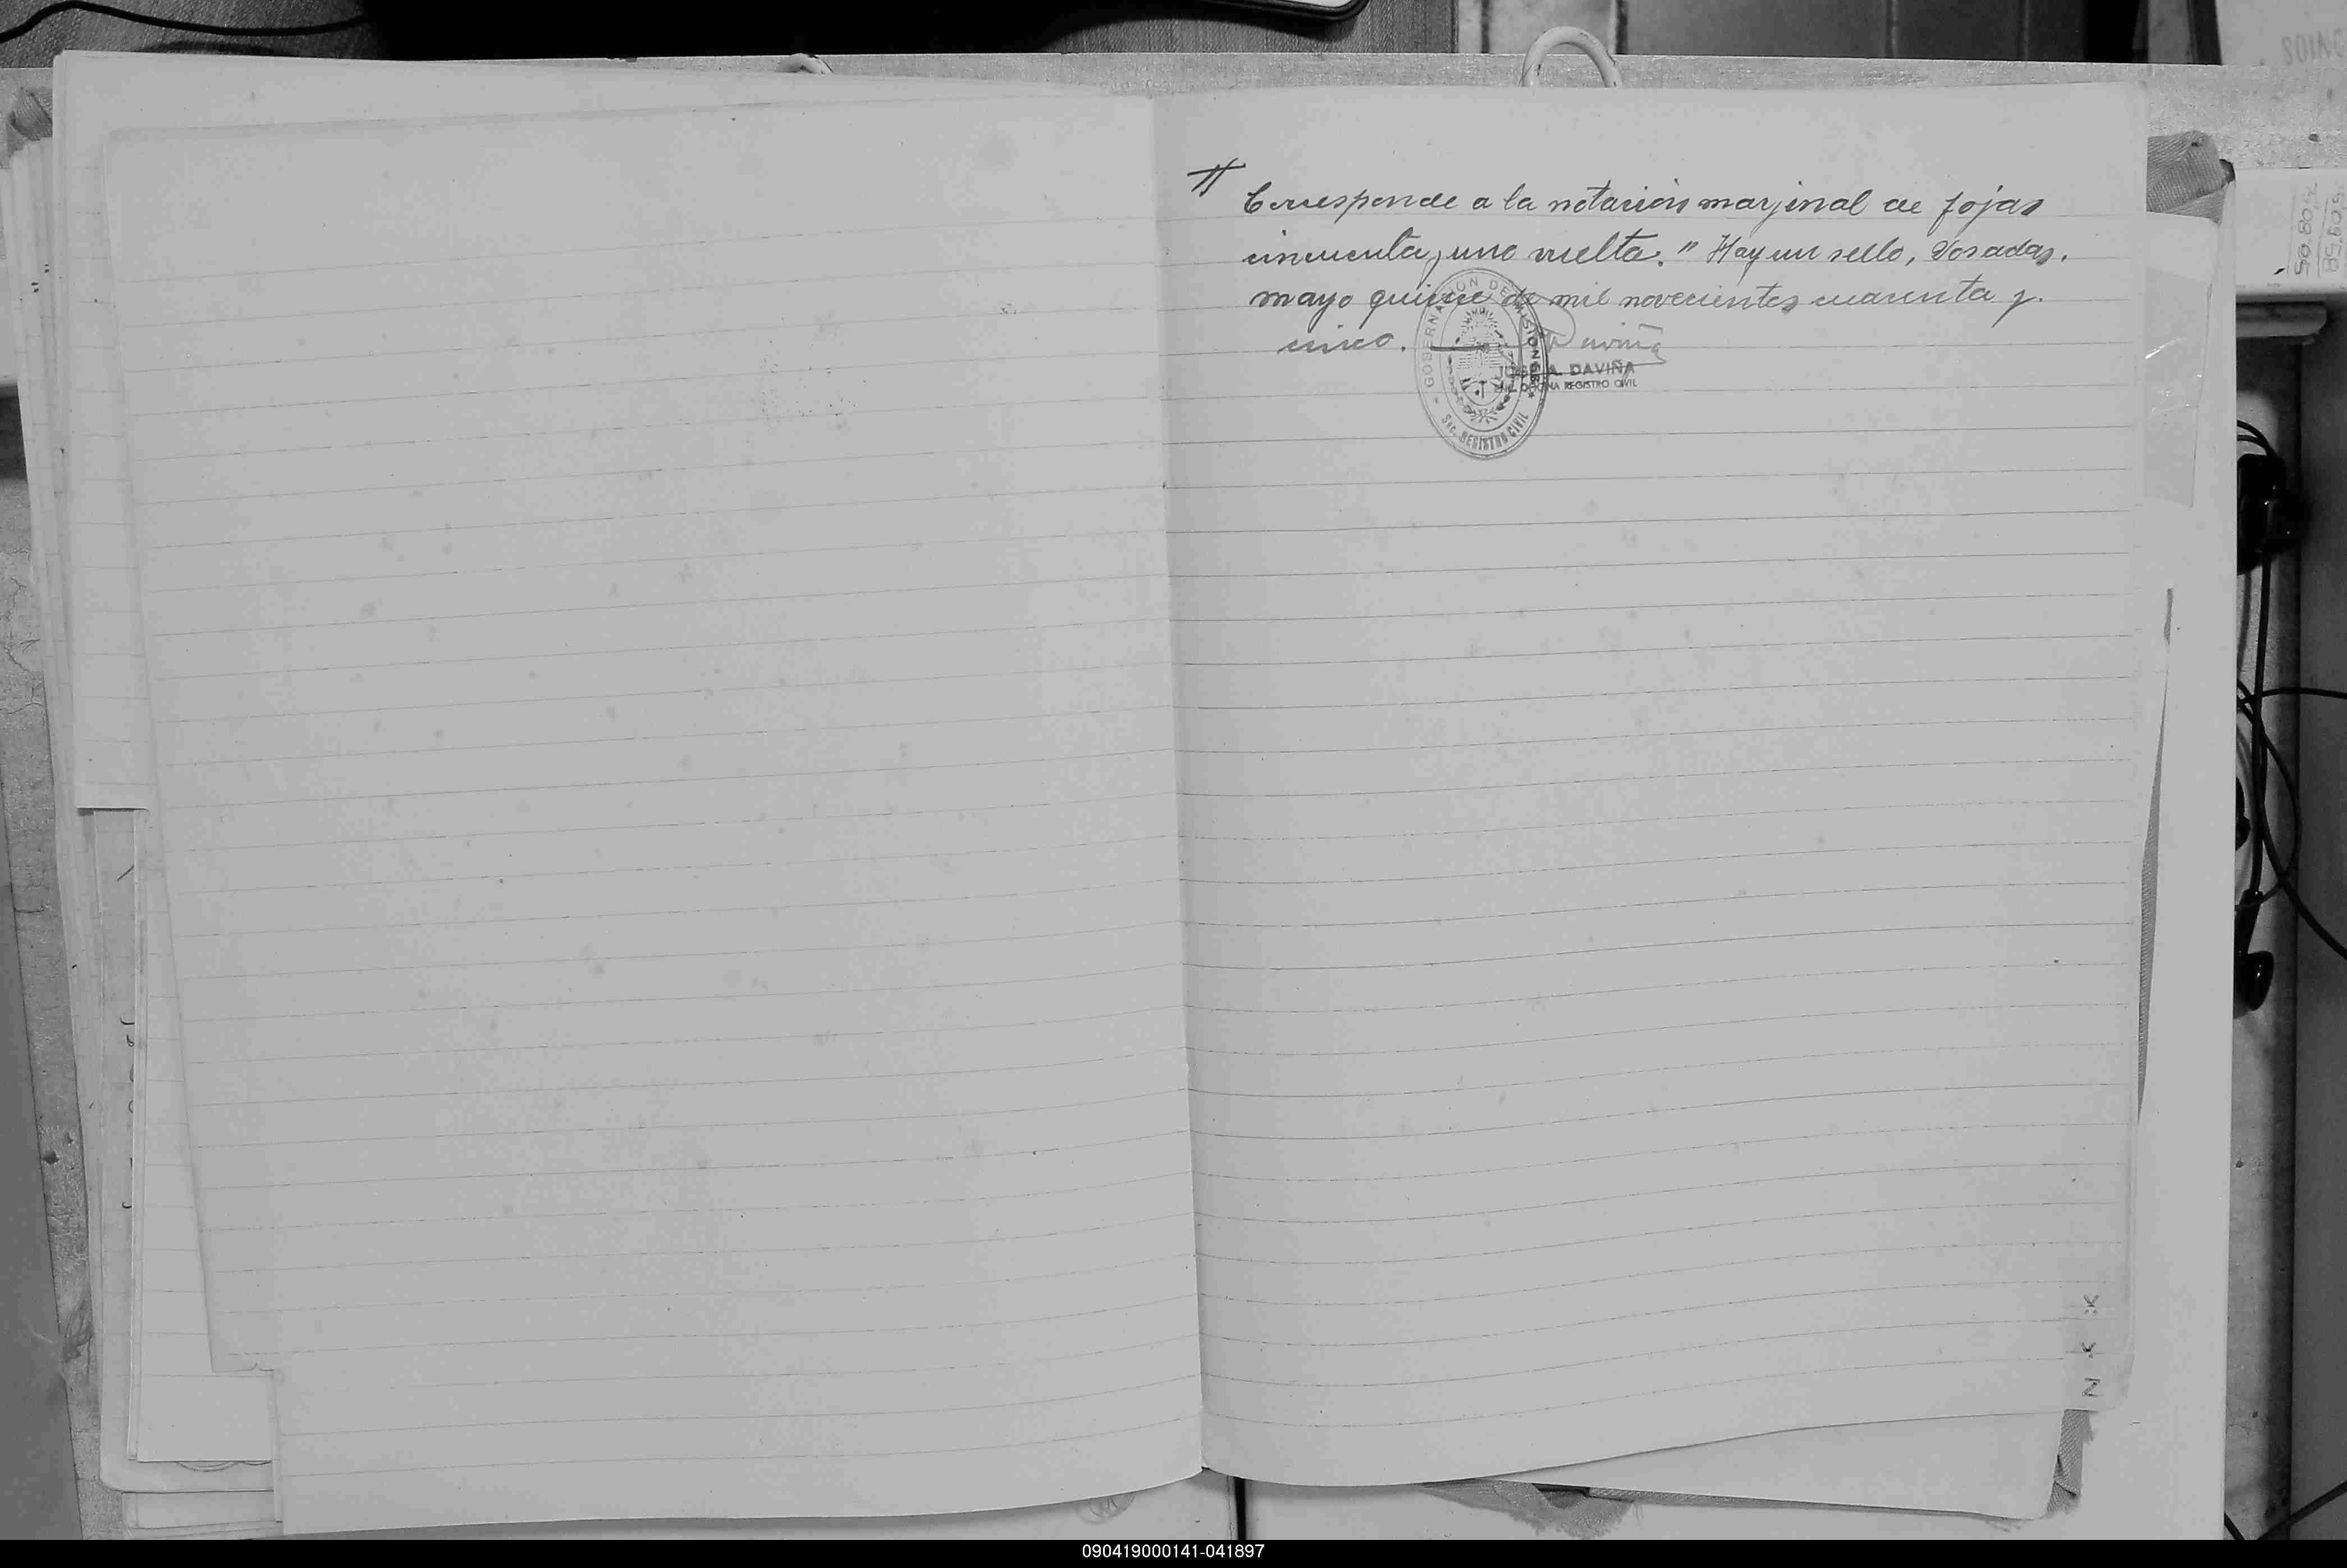 // Corresponde a la notación marjinal de fojas
cincuenta y uno vuelta." Hay un sello, Posadas,
mayo quince de mil novecientos cuarenta y
cinco.
Daviña
JOSE A. DAVIÑA
OFICINA REGISTRO CIVIL
GOBERNACION DE MISIONES
Sec. REGISTRO CIVIL
N K K
090419000141-041897